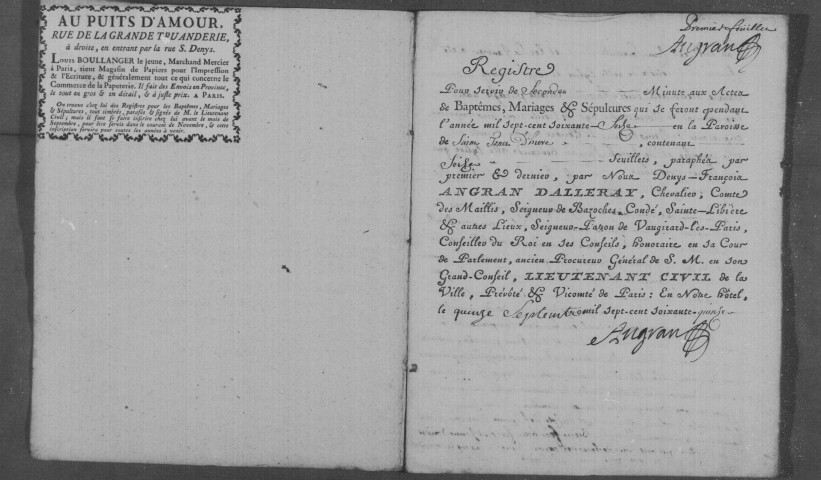 AU PUITS D'AMOUR,
RUE DE LA GRANDE TRUANDERIE,
à droite, en entrant par la rue S. Denys.
LOUIS BOULLANGER le jeune, Marchand Mercier
à Paris, tient Magasin de Papiers pour l'Impression
& l'Ecriture, & généralement tout ce qui concerne le
Commerce de la Papeterie. Il fait des Envois en Province,
le tout en gros & en détail, & à juste prix. A PARIS.
On trouve chez lui des Registres pour les Baptêmes, Mariages
& Sépultures, tout timbrés, paraphés & signés de M. le Lieutenant
Civil; mais il faut se faire inscrire chez lui avant le mois de
Septembre, pour être servis dans le courant de Novembre, & cette
inscription servira pour toutes les années à venir.
Premier feuillet
Angran
Registre
Pour servir de Seconde Minute aux Actes
de Baptêmes, Mariages & Sépultures qui se feront pendant
l'année mil sept-cent soixante-Seize en la Paroisse
de Saint contenant
Seize feuillets, paraphés par
premier & dernier, par Nous Denys-François
ANGRAN DALLERAY, Chevalier, Comte
des Maillis, Seigneur de Bazoches, Condé, Sainte-Libière
& autres Lieux, Seigneur-Patron de Vaugirard-lès-Paris,
Conseiller du Roi en ses Conseils, honoraire en sa Cour
de Parlement, ancien Procureur Général de S. M. en son
Grand-Conseil, LIEUTENANT CIVIL de la
Ville, Prévôté & Vicomté de Paris: En Notre hôtel,
le quinze Septembre mil sept-cent soixante-quinze
Angran